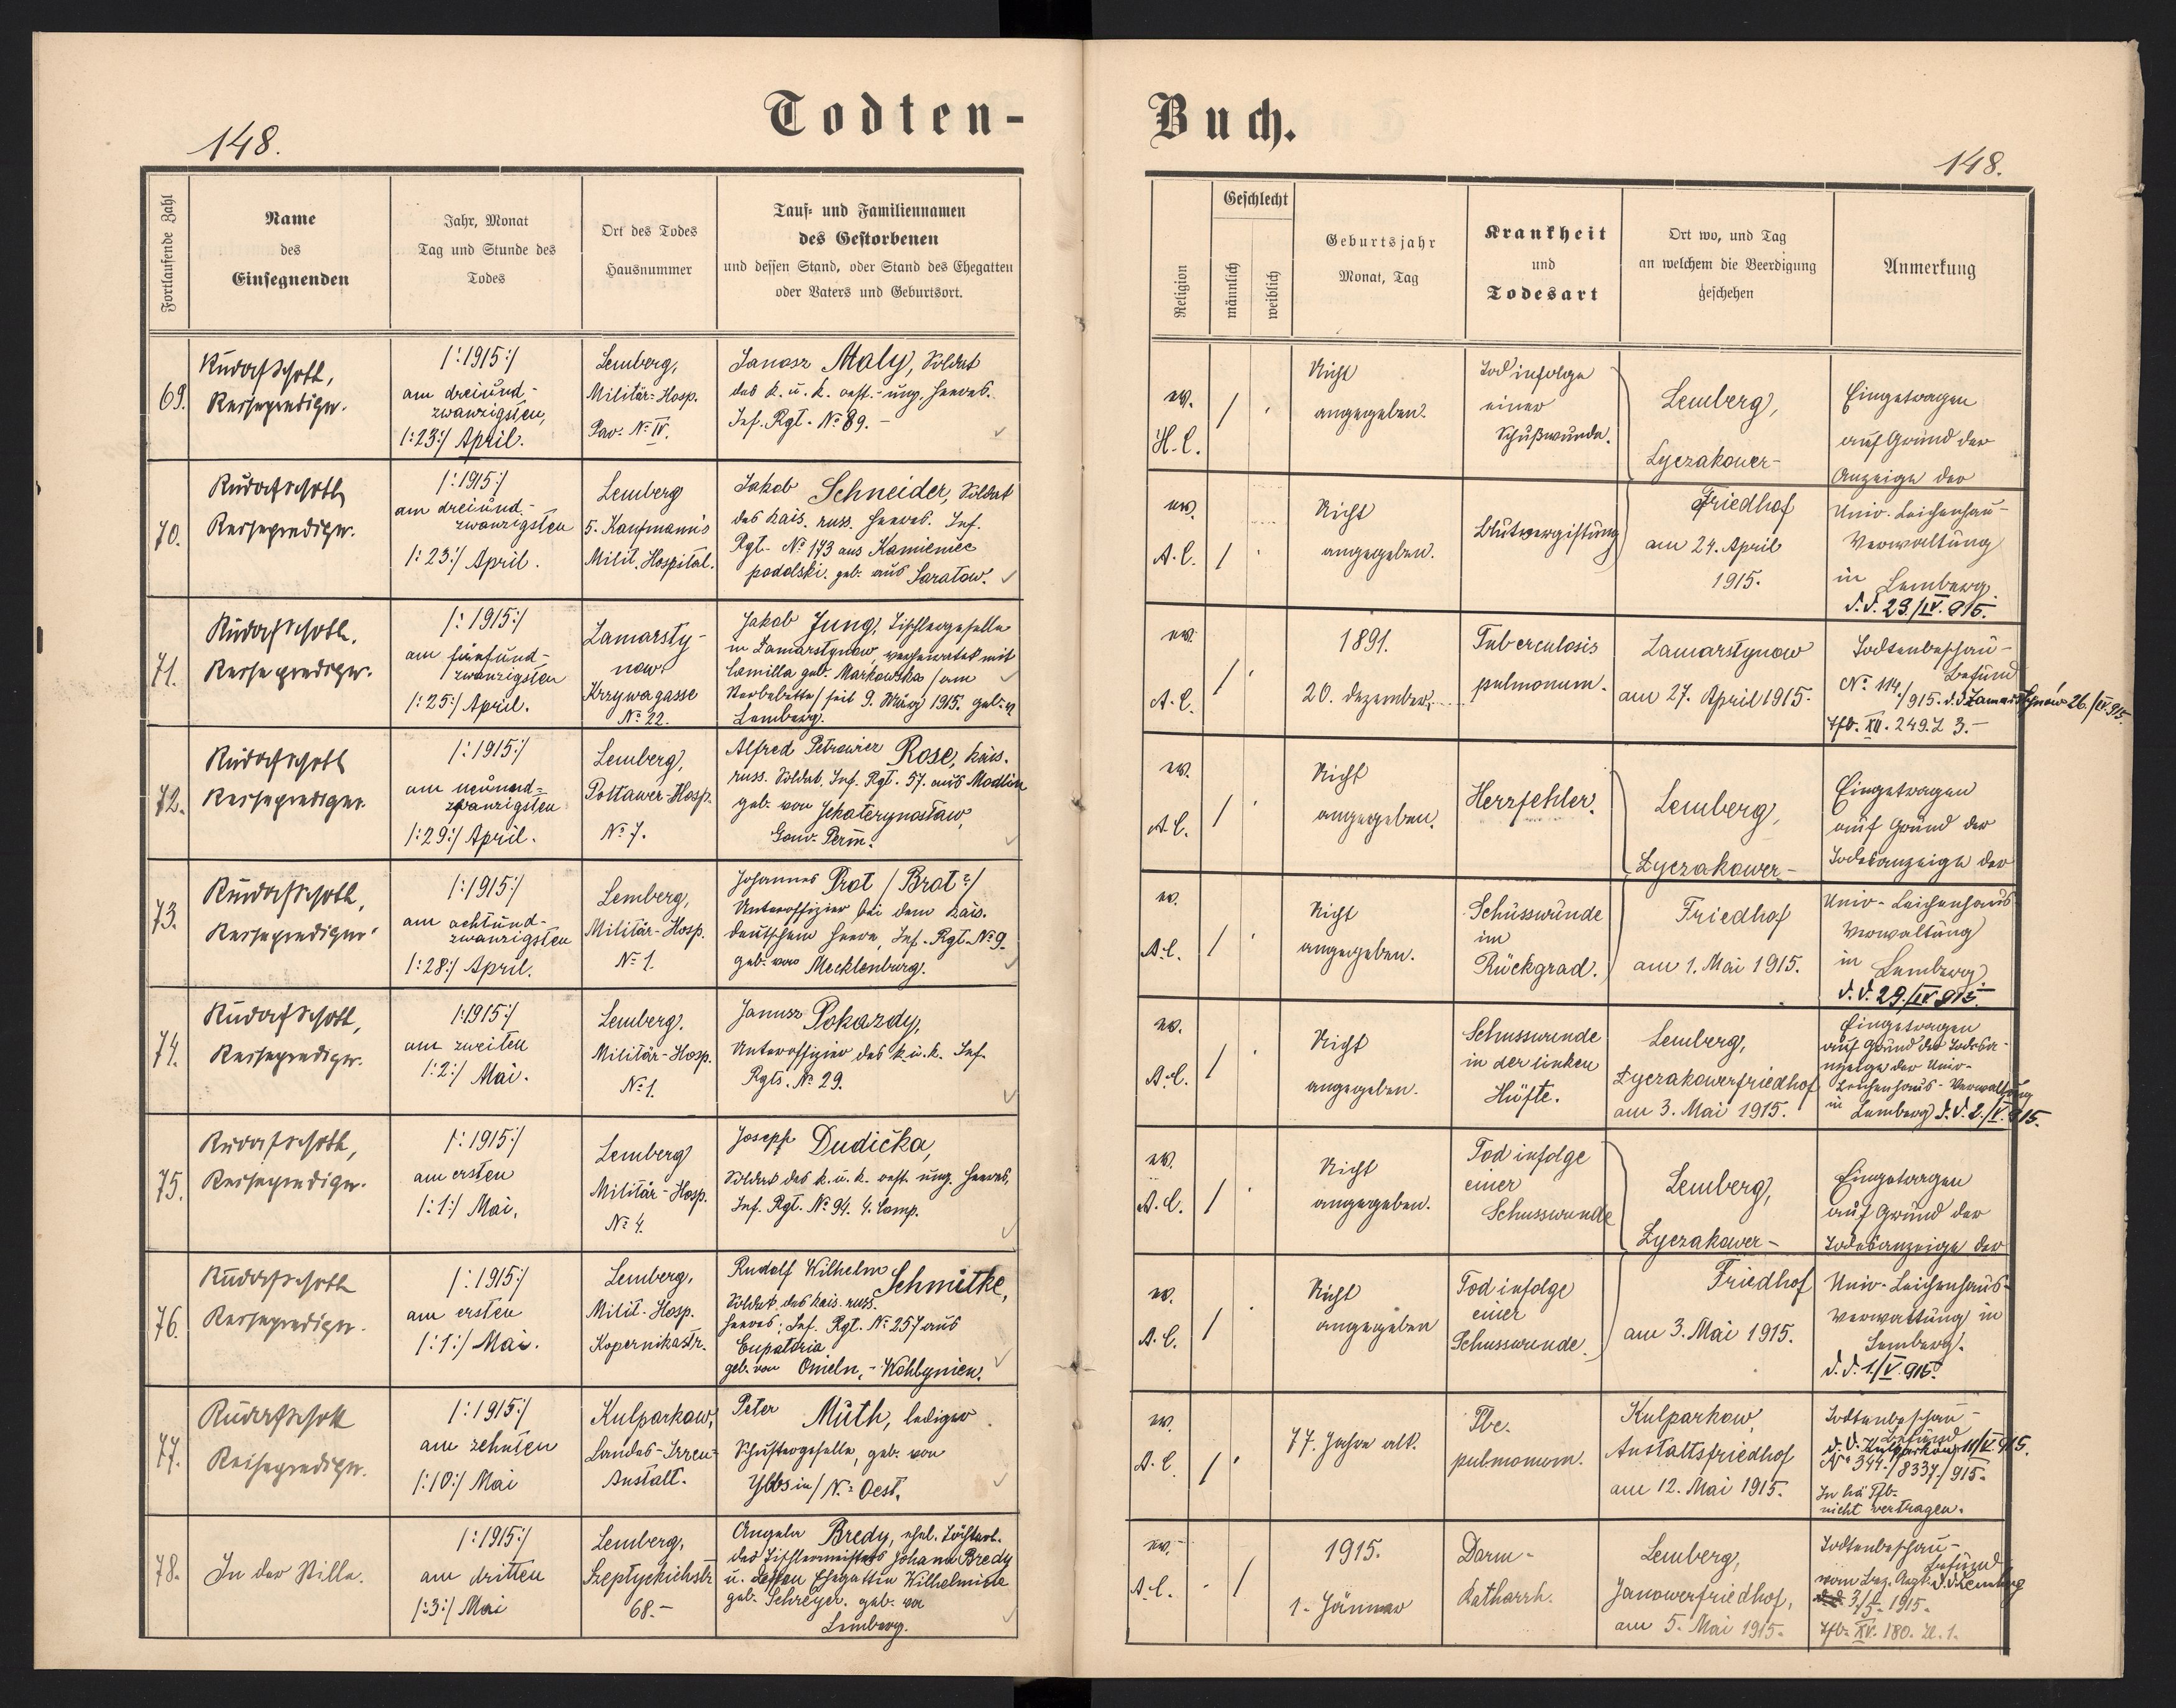 Todten-
148.
Fortlaufende Zahl
Name
des
Einsegnenden
Jahr, Monat
Tag und Stunde des
Todes
Ort des Todes
Hausnummer
Tauf- und Familiennamen
des Gestorbenen
und dessen Stand, oder Stand des Ehegatten
oder Vaters und Geburtsort.
69.
Reiseprediger.
/:1915:/
am dreiund-
zwanzigsten,
/:23:/ April.
Lemberg,
Militär-Hosp.
Pav. № IV.
Janosz Maly, Soldat
des k. u. k. oest.-ung. Heeres.
Inf. Rgt. № 89. -
70.
Reiseprediger.
/:1915:/
am dreiund-
zwanzigsten
/:23:/ April.
Lemberg
5. Kaufmanns
Milit. Hospital.
Jakob Schneider, Soldat
des kais. russ. Heeres. Inf.
Rgt. № 173 aus Kamieniec
podolski. geb. aus Saratow.
71.
Reiseprediger.
/:1915:/
am fünfund-
zwanzigsten
/:25:/ April.
Zamarsty-
now
Krzywagasse
№ 22.
Jakob Jung, Tischlergeselle
in Zamarstynow, verheiratet mit
Camilla geb. Markowska /am
Sterbebette/ seit 9. März 1915. geb. in
Lemberg.
72.
Reiseprediger.
/:1915:/
am neunund-
zwanzigsten
/:29:/ April.
Lemberg,
Poltawer-Hosp.
№ 7.
Alfred Petrowicz Rose, kais.
russ. Soldat, Inf. Rgt. 57. aus Modlin
geb. von Jekaterynoslaw,
Gouv. Perm.
73.
Reiseprediger.
/:1915:/
am achtund-
zwanzigsten
/:28:/ April.
Lemberg,
Militär-Hosp.
№ 1.
Johannes Prot /Brot?/
Unteroffizier bei dem kais.
deutschen Heere, Inf. Rgt. № 9.
geb. von Mecklenburg.
74.
Reiseprediger.
/:1915:/
am zweiten
/:2:/ Mai.
Lemberg.
Militär-Hosp.
№ 1.
Janusz Pokazdy,
Unteroffizier des k. u. k. Inf.
Rgts. № 29.
75.
Reiseprediger.
/:1915:/
am ersten
/:1:/ Mai.
Lemberg
Militär-Hosp.
№ 4.
Joseph Dudička,
Soldat des k. u. k. oest. ung. Heeres,
Inf. Rgt. № 94. 4. Comp.
76.
Reiseprediger.
/:1915:/
am ersten
/:1:/ Mai.
Lemberg,
Milit-Hosp.
Kopernikastr.
Rudolf Wilhelm Schmitke,
Soldat des kais. russ.
Heeres: Inf. Rgt. № 257 aus
Eupatoria
geb. von Omeln, - Wohlynien.
77.
Reiseprediger.
/:1915:/
am zehnten
/:10:/ Mai
Kulparkow,
Landes-Irren-
Anstalt.
Peter Muth, lediger
Schustergeselle, geb. von
Ybbs in/ N. Oest.
78.
In der Stille.
/:1915:/
am dritten
/:3:/ Mai
Lemberg,
Szeptyckichstr
68.-
Angela Bredy, ehel. Töchterl.
des Tischlermeisters Johann Bredy
u. dessen Ehegattin Wilhelmine
geb. Schreyer. geb. in
Lemberg.
Buch.
148.
Religion
Geschlecht
männlich
weiblich
Geburtsjahr
Monat, Tag
Krankheit
und
Todesart
Ort wo, und Tag
an welchem die Beerdigung
geschehen
Anmerkung
ev.
H.C.
/
Nicht
angegeben.
Tod infolge
einer
Schußwunde.
Lemberg,
Lyczakower-
Eingetragen
auf Grund der
Anzeige der
ev.
A.C.
/
Nicht
angegeben.
Blutvergiftung
Friedhof
am 24. April
1915.
Univ. Leichenhaus-
Verwaltung
in Lemberg.
d.d. 23./IV. 915.
ev.
A.C.
/
1891.
20. Dezember.
Tuberculosis
pulmonum.
Zamarstynow
am 27. April 1915.
Todtenbeschau-
Befund
№ 114./915. d.d. Zamarstynow 26./IV.915.
Tfb. XII. 249. Z 3.-
ev.
A.C.
/
Nicht
angegeben.
Herzfehler.
Lemberg,
Lyczakower-
Eingetragen
auf Grund der
Todesanzeige der
ev.
A.C.
/
Nicht
angegeben.
Schusswunde
im
Rückgrad.
Friedhof
am 1. Mai 1915.
Univ.-Leichenhaus-
Verwaltung
in Lemberg.
d.d. 29./IV 915.
ev.
A.C.
/
Nicht
angegeben.
Schusswunde
in der linken
Hüfte.
Lemberg,
Lyczakowerfriedhof
am 3. Mai 1915.
Eingetragen
auf Grund der Todesa-
nzeige der Univ-
Leichenhaus-Verwaltung
in Lemberg d.d. 2./V. 915.
ev.
A.C.
/
Nicht
angegeben.
Tod infolge
einer
Schusswunde
Lemberg,
Lyczakower-
Eingetragen
auf Grund der
Todesanzeige der
ev.
A.C.
/
Nicht
angegeben
Tod infolge
einer
Schusswunde.
Friedhof
am 3. Mai 1915.
Univ-Leichenhaus-
verwaltung in
Lemberg.
d.d. 1/V. 915.
ev.
A.C.
/
77. Jahre alt.
Tbc.
pulmonum.
Kulparkow
Anstaltsfriedhof
am 12. Mai 1915.
Todtenbeschau-
Befund
d.d. Kulparkow 11/V. 915.
№ 344./8337/915.
nicht vertragen.
ev.
A.C.
/
1915.
1. Jänner
Darm-
Katharrh.
Lemberg,
Janowerfriedhof,
am 5. Mai 1915.
Todtenbeschau-
Befund
d.d. Lemberg
3/5. 1915.
Tfb. XV. 180. Z. 1.